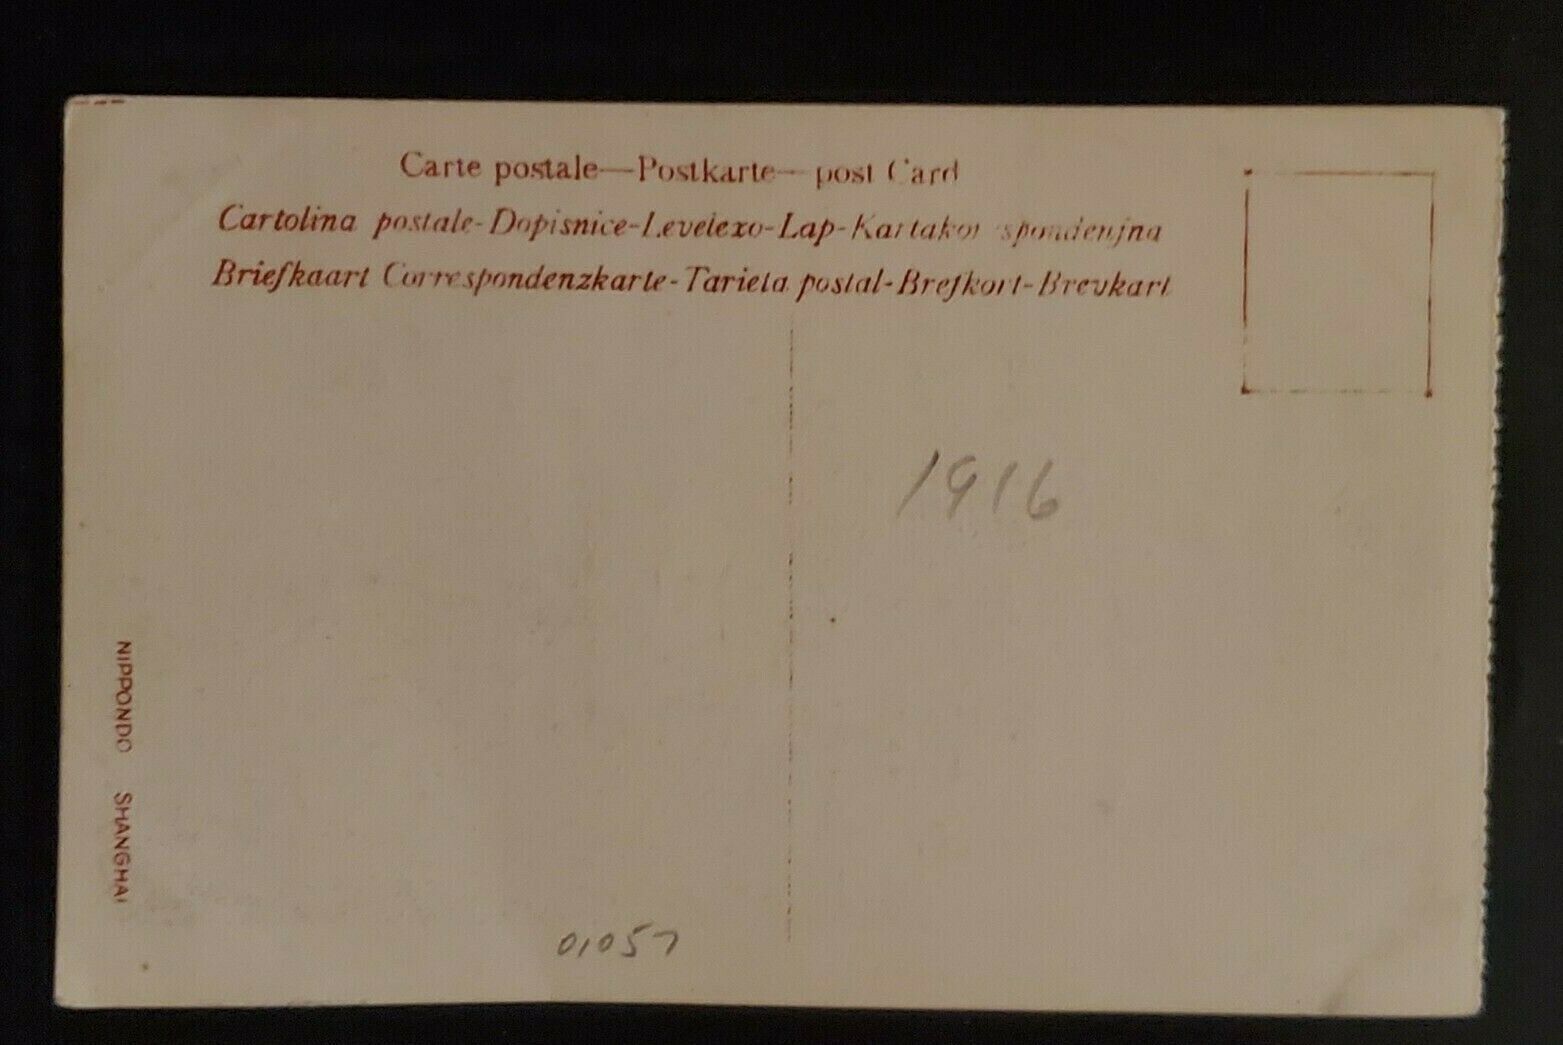 Carte postale—Postkarte—post Card
Cartolina postale-Dopisnice-Levelexo-Lap-Kartakor spondenjna
Briefkaart Correspondenzkarte-Tarieta postal-Brefkort-Brevkart
1916
NIPPONDO SHANGHAI
01057